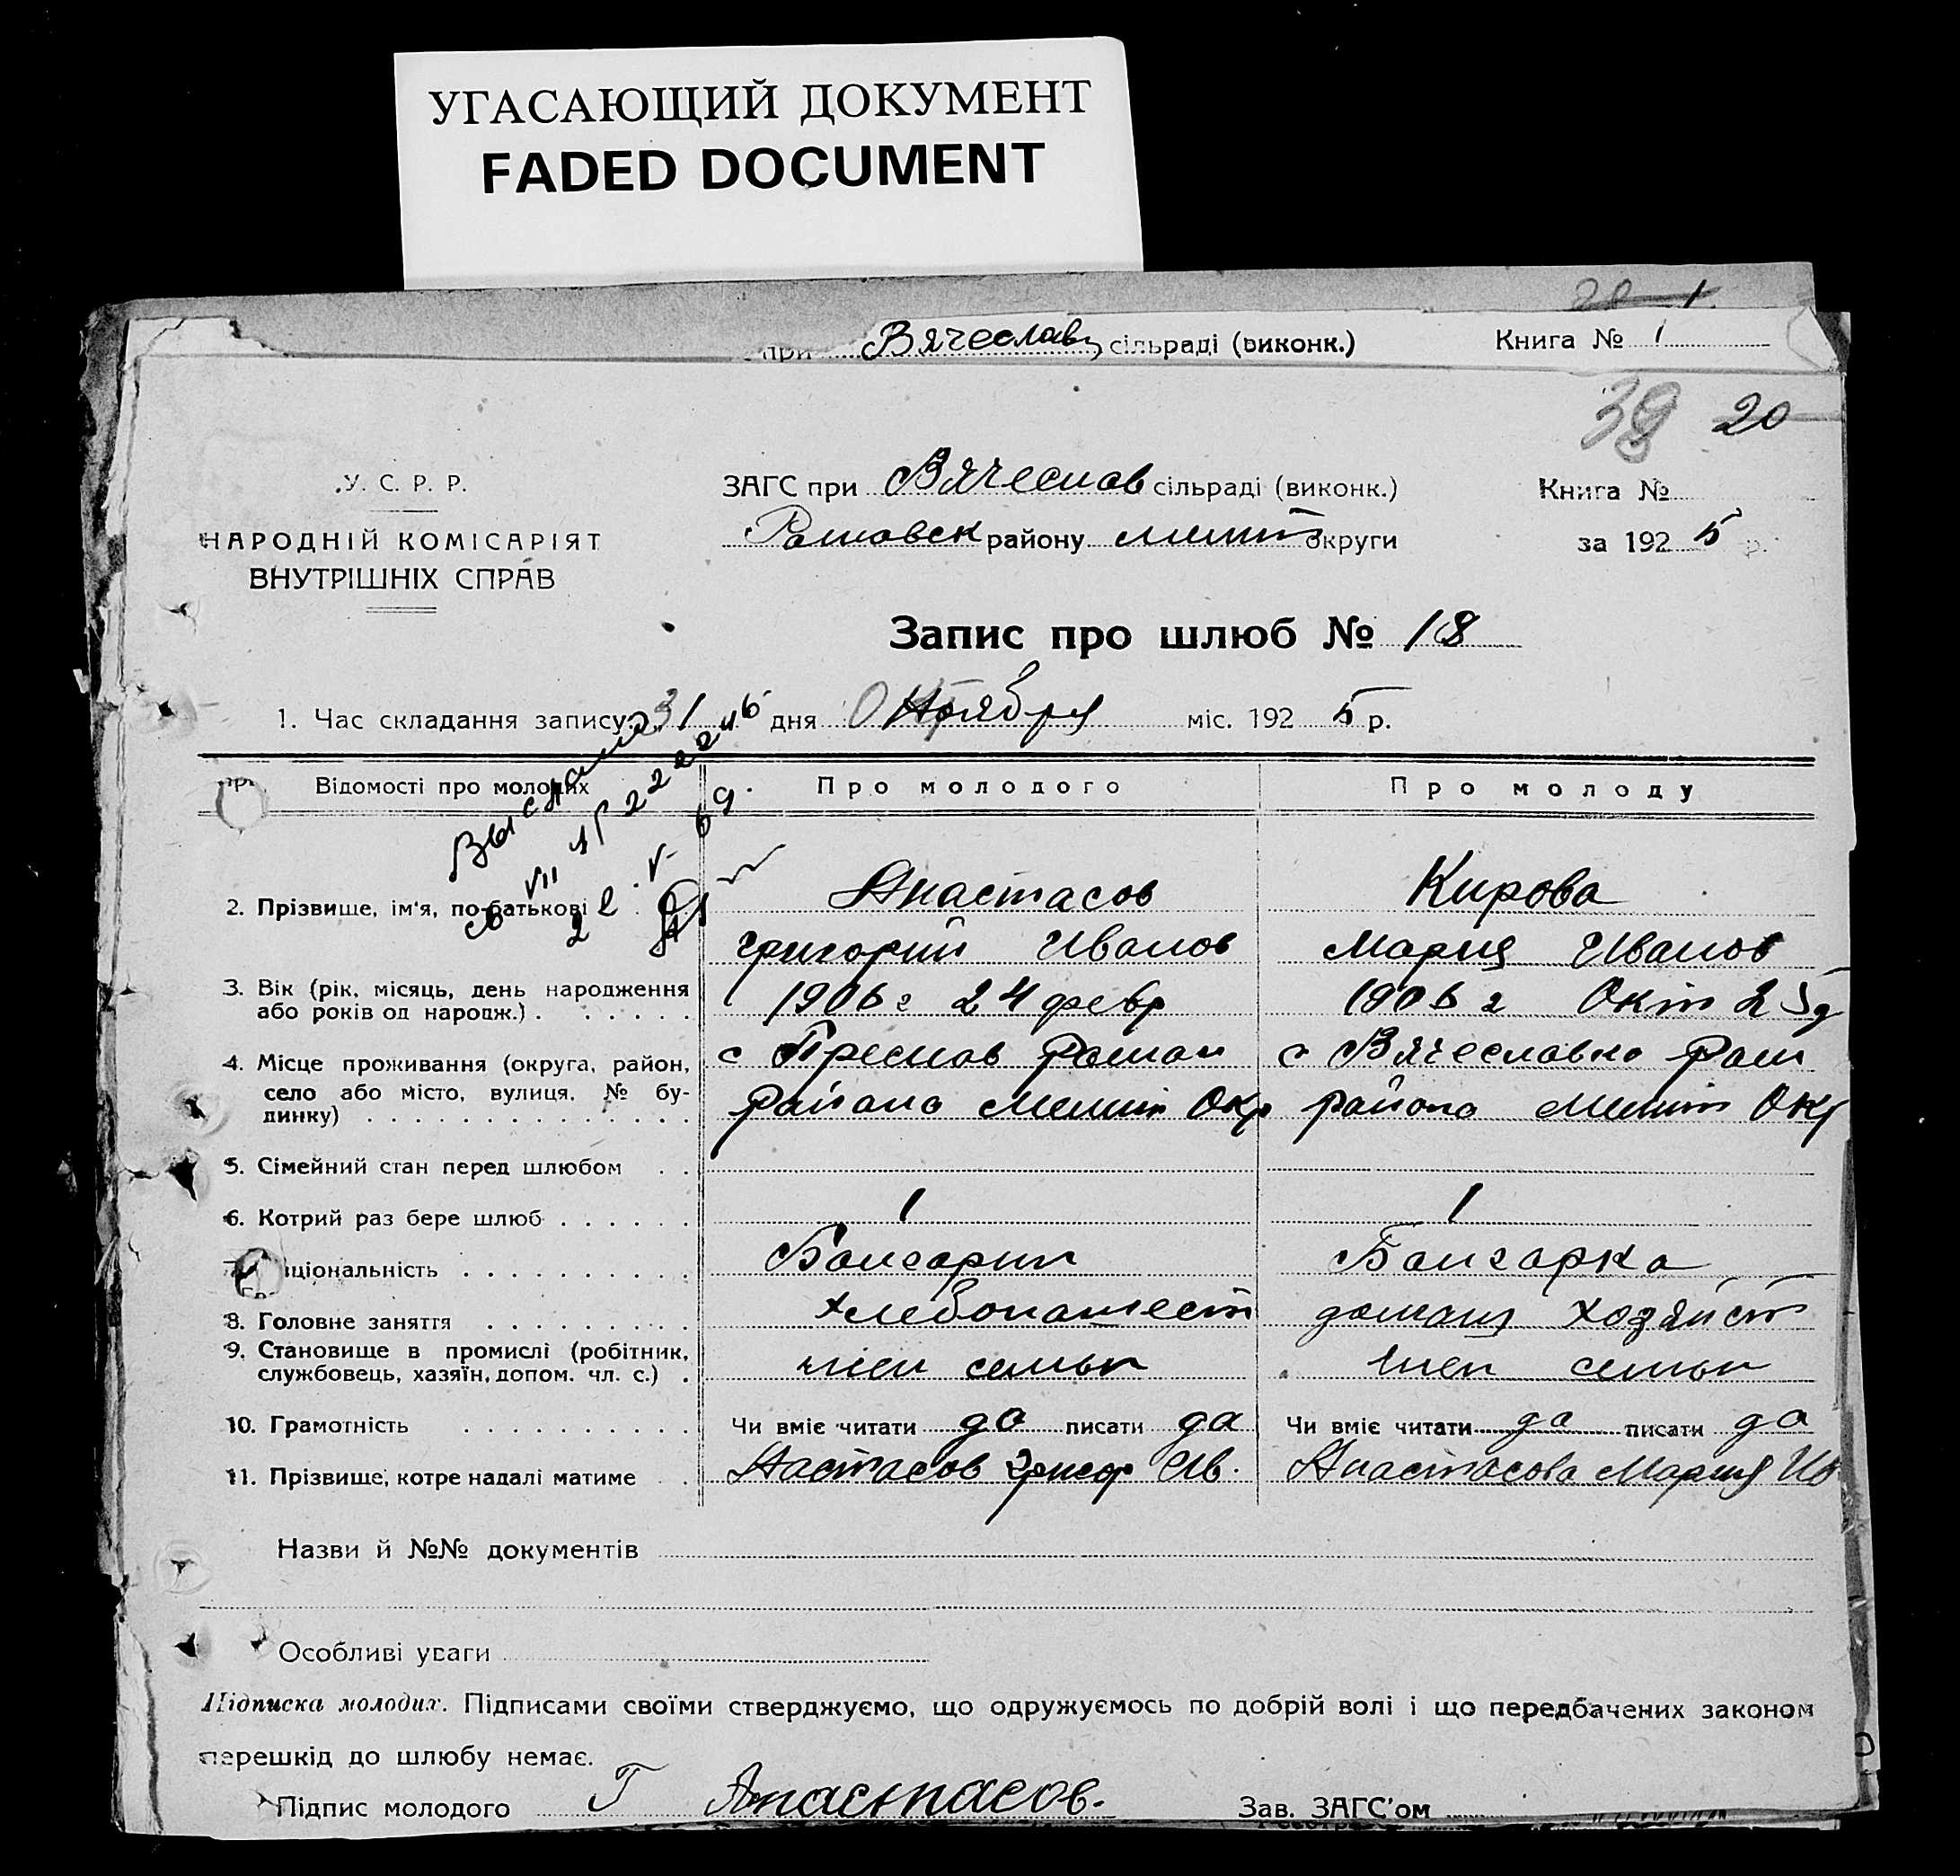 УГАСАЮЩИЙ ДОКУМЕНТ
FADED DOCUMENT
при Вячеславц сільраді (виконк.) Книга № 1
38 20
У. С. Р. Р.
НАРОДНІЙ КОМІСАРІЯТ
ВНУТРІШНІХ СПРАВ
ЗАГС при Вячеслав сільраді (виконк.) Книга №
Романовск району Мелит округи за 1925 р.
Запис про шлюб № 18
1. Час складання запису 31 дня Октября міс. 1925 р.
Відомості про молодих Про молодого Про молоду
Выслано
2. Прізвище, ім'я, по-батькові Анастасов Кирова
Григорий Иванов Мария Иванов
3. Вік (рік, місяць, день народження 1906 г 24 февр 1906 г Окт 25 д
або років од народж.)
4. Місце проживання (округа, район, с Преслав Роман с Вячеславка Ром
село або місто, вулиця, № бу-
динку) района Мелит Окр района Мелит Окр
5. Сімейний стан перед шлюбом
6. Котрий раз бере шлюб 1 1
ціональність Болгарин Болгарка
8. Головне заняття хлебопашест домашн хозяйст
9. Становище в промислі (робітник,
службовець, хазяїн, допом. чл. с.) член семьи член семьи
10. Грамотність Чи вміє читати да писати да Чи вміє читати да писати да
11. Прізвище, котре надалі матиме Настасов Григор Ив. Анастасова Мария Ив
Назви й №№ документів
Особливі уваги
Підписка молодих. Підписами своїми стверджуємо, що одружуємось по добрій волі і що передбачених законом
перешкід до шлюбу немає.
Підпис молодого Г Анастасов. Зав. ЗАГС'ом